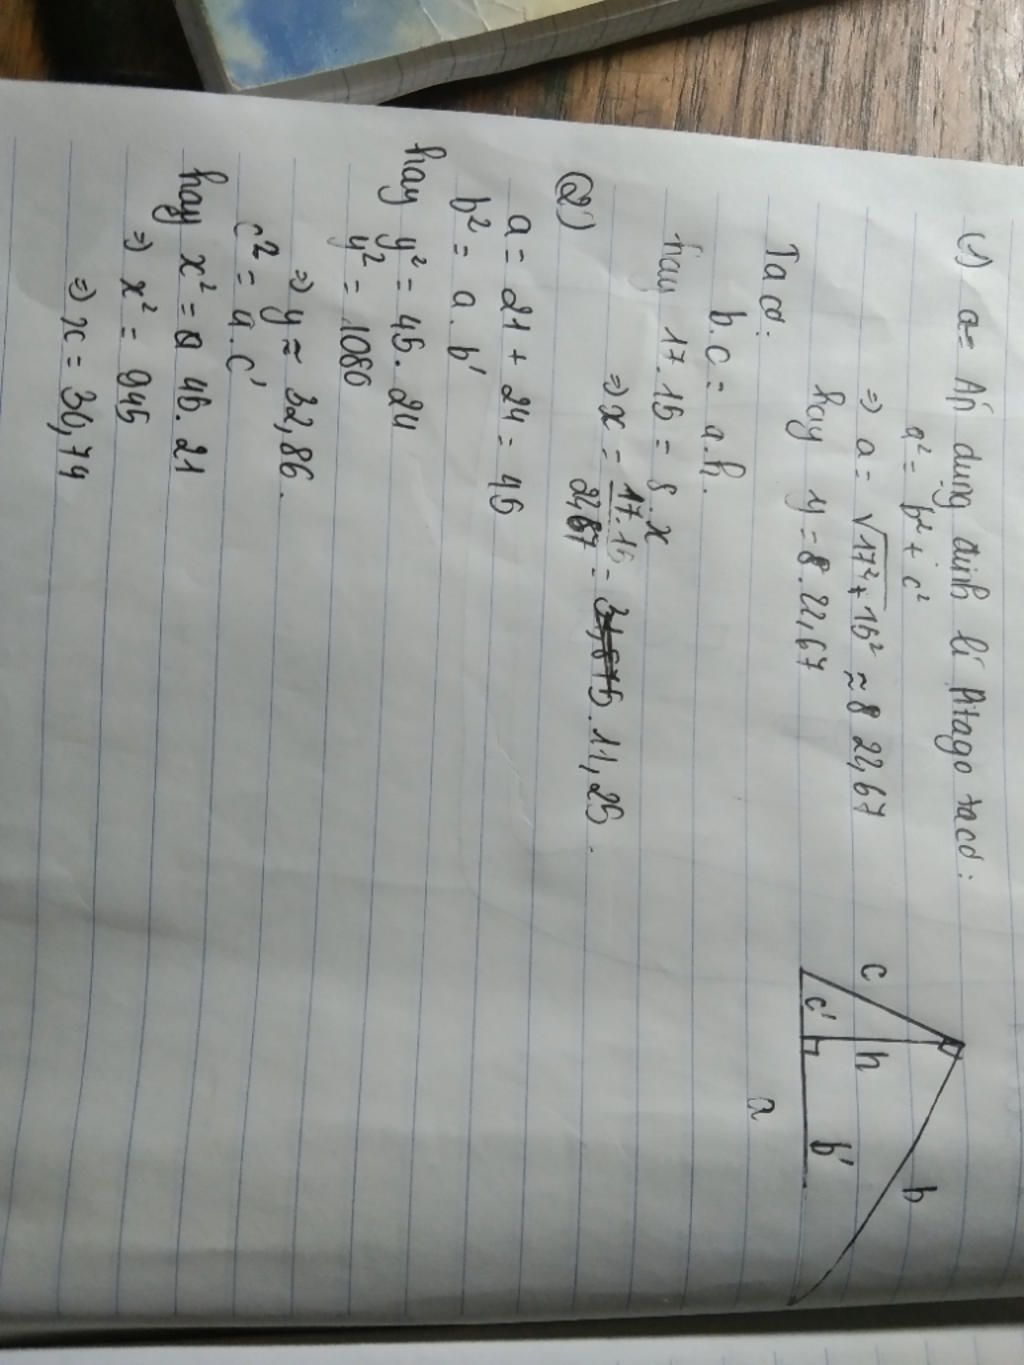 (1) a= Áp dụng định lí Pitago ta có:
a² = b² + c²
⇒ a = √17² + 15² ≈ 8 22,67
hay y = 8.22,67
Ta có:
b.c = a.h.
hay 17.15 = 8.x
⇒ x = 17.15 / 22,67 = 11,25.
(2)
a = 21 + 24 = 45
b² = a.b'
hay y² = 45.24
y² = 1080
⇒ y ≈ 32,86.
c² = a.c'
hay x² = 45.21
⇒ x² = 945
⇒ x = 30,74
c
h
b
c'
b'
a